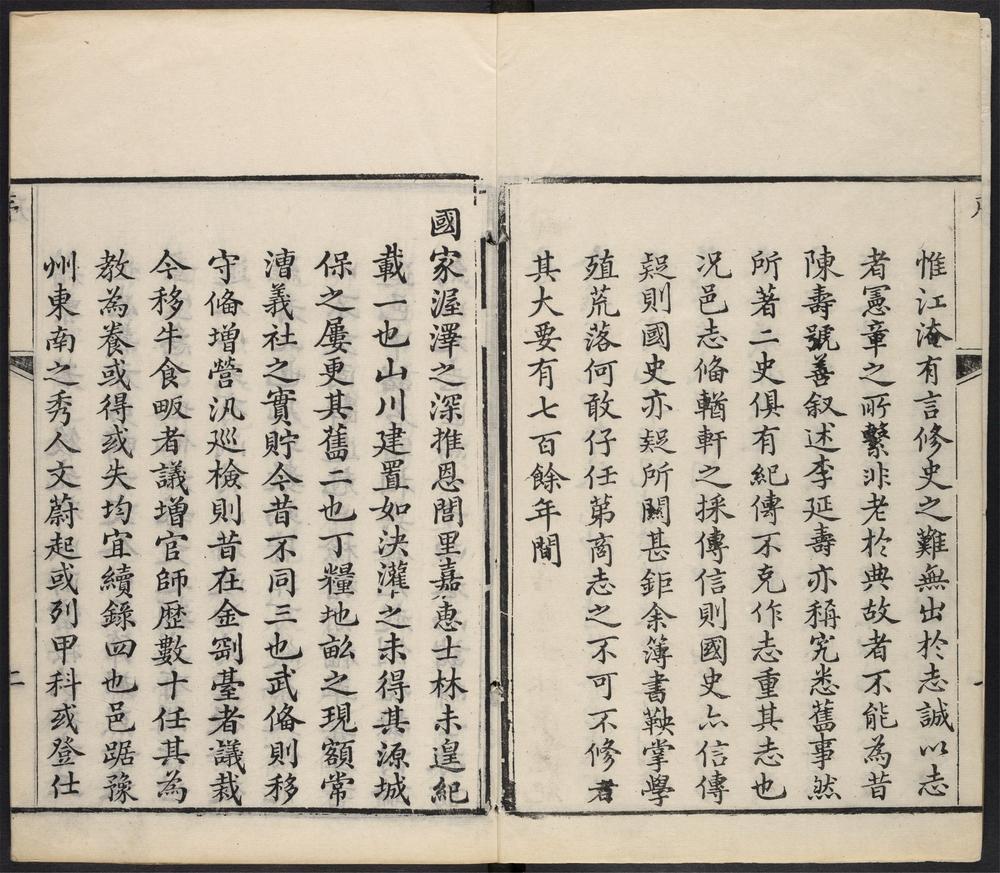 惟江淹有言修史之難無出於志誠以志
者憲章之所繫非老於典故者不能為昔
陳壽號善叙述李延壽亦稱究悉舊事然
所著二史俱有紀傳不克作志重其志也
况邑志俻輶軒之採傳信則國史亦信傳
疑則國史亦疑所關甚鉅余簿書鞅掌學
殖荒落何敢仔任苐商志之不可不修者
其大要有七百餘年間
國家渥澤之深推恩閭里嘉惠士林未遑紀
載一也山川建置如決灉之未得其源城
保之屢更其舊二也丁糧地畆之現額常
漕義社之實貯今昔不同三也武俻則移
守俻增營汛廵檢則昔在金剛臺者議裁
今移牛食畈者議增官師歴數十任其為
教為養或得或失均宜續錄四也邑踞豫
州東南之秀人文蔚起或列甲科或登仕
二